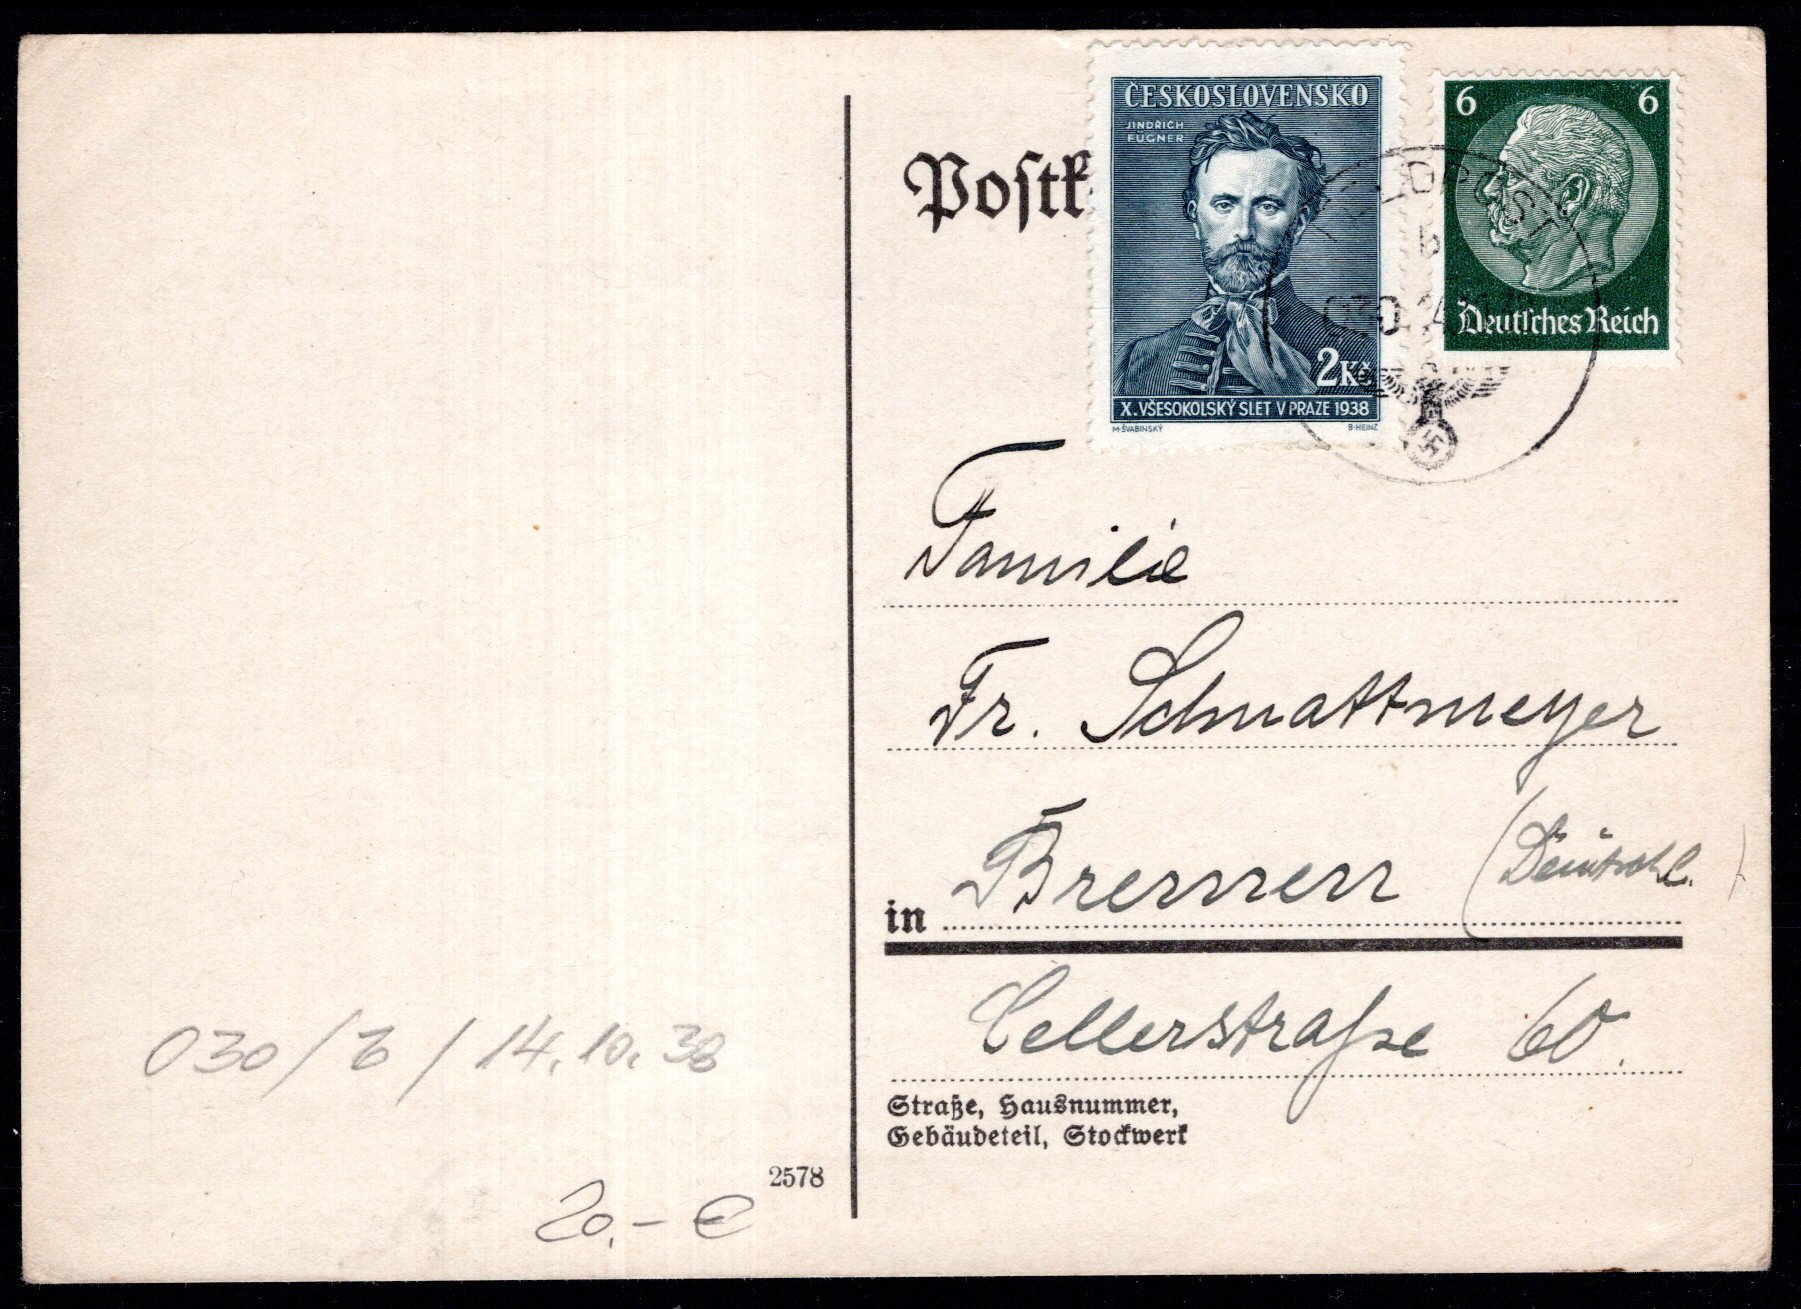 Postk
ČESKOSLOVENSKO
JINDŘICH
FÜGNER
2Kč
X. VŠESOKOLSKÝ SLET V PRAZE 1938
M·ŠVABINSKÝ B·HEINZ
6 6
Deutsches Reich
b
Familie
Fr. Schnattmeyer
in Bremen (Deutschl.)
Cellerstraße 60.
Straße, Hausnummer,
Gebäudeteil, Stockwerk
030/b/14.10.38
2578
20,- €